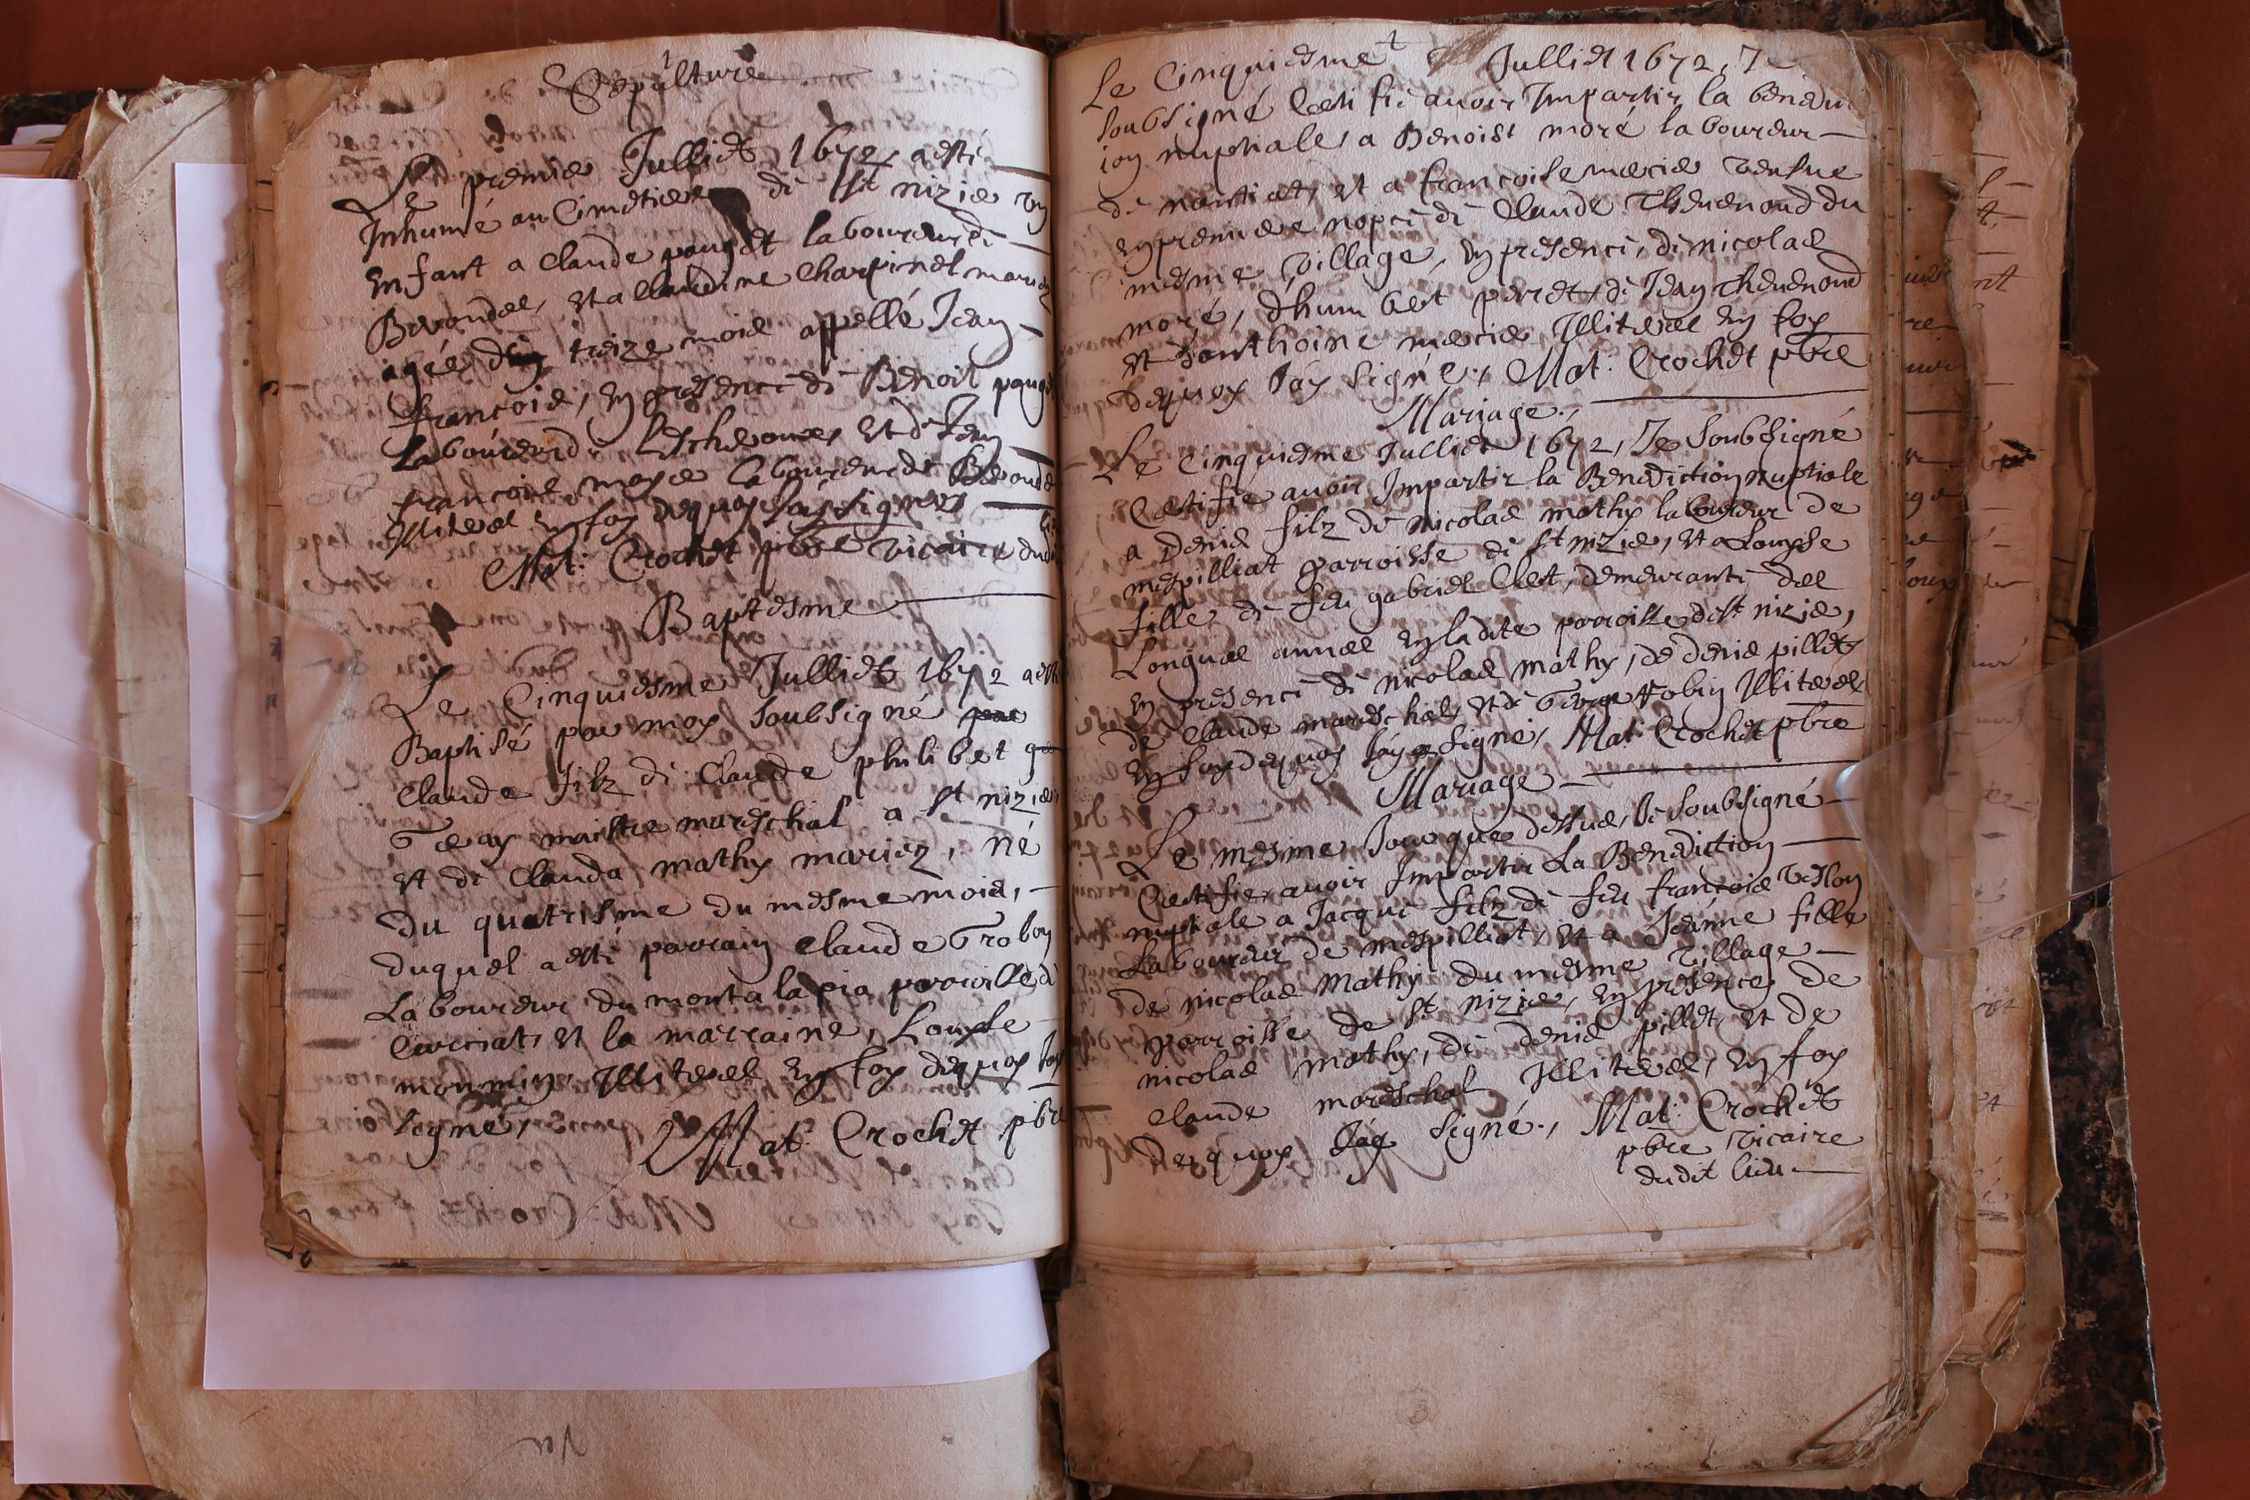 Sepulture
Le premier Julliet 1672, a esté
Inhumé au Cimetiere de St nizier un
enfant a Claude pauget laboureur de
et a Claudine Charpinet mariez
agée treize mois appellé Jean
françois, en presence de Benoit pauget
laboureur de Leschemoux, et de Jean
françois laboureur de
Illiteres en foy dequoy j'ay signé
Mat: Crochet pbre vicaire dudit
Baptesme
Le Cinquiesme Julliet 1672 a esté
Baptisé par moy soubsigné par
Claude filz de Claude philibert
maistre mareschal a St nizier
et de Clauda mathy mariez, né
du quatrisme du mesme mois,
duquel a esté parrain Claude Trobon
Laboureur du montalapia parroisse de
Curciat, et la marraine, Louyse
monmin, Illiteres en foy dequoy j'ay
signé, Mat: Crochet pbre
Le Cinquiesme Julliet 1672, Je
soubsigné Certifie avoir Impartir la benedict
ion nuptiale, a Benoist moré laboureur
de mantiat, et a francoise mercier vefve
en premiere nopce de Claude Thevenoud du
mesme village, en presence, de nicolas
moré, d'humbert perret, de Jean Thevenoud
et d'anthoine mercier Illiteres en foy
dequoy j'ay signé, Mat: Crochet pbre
Mariage.
Le Cinquiesme Julliet 1672, Je soubsigné
Certifie avoir Impartir la Benediction nuptiale
a denis filz de nicolas mathy laboureur de
mespilliat parroisse de St nizier, et a Louyse
fille de feu gabriel Clert, demeurante des
Longues années en ladite parroisse de St nizier,
en presence de nicolas mathy, de denis pillet
de Claude mareschal, et de George robin Illiteres
en foy dequoy j'ay signé, Mat: Crochet pbre
Mariage
Le mesme Jour que dessus, Je soubsigné
Certifie avoir Impartir La Benediction
nuptiale a Jacque filz de feu françois Veslon
Laboureur de mespilliat, et a Jeanne fille
de nicolas Mathy du mesme village
parroisse de St nizier, en presence de
nicolas mathy, de denis pillet, et de
Claude mareschal Illiteres, en foy
dequoy j'ay signé., Mat: Crochet
pbre vicaire
dudit lieu